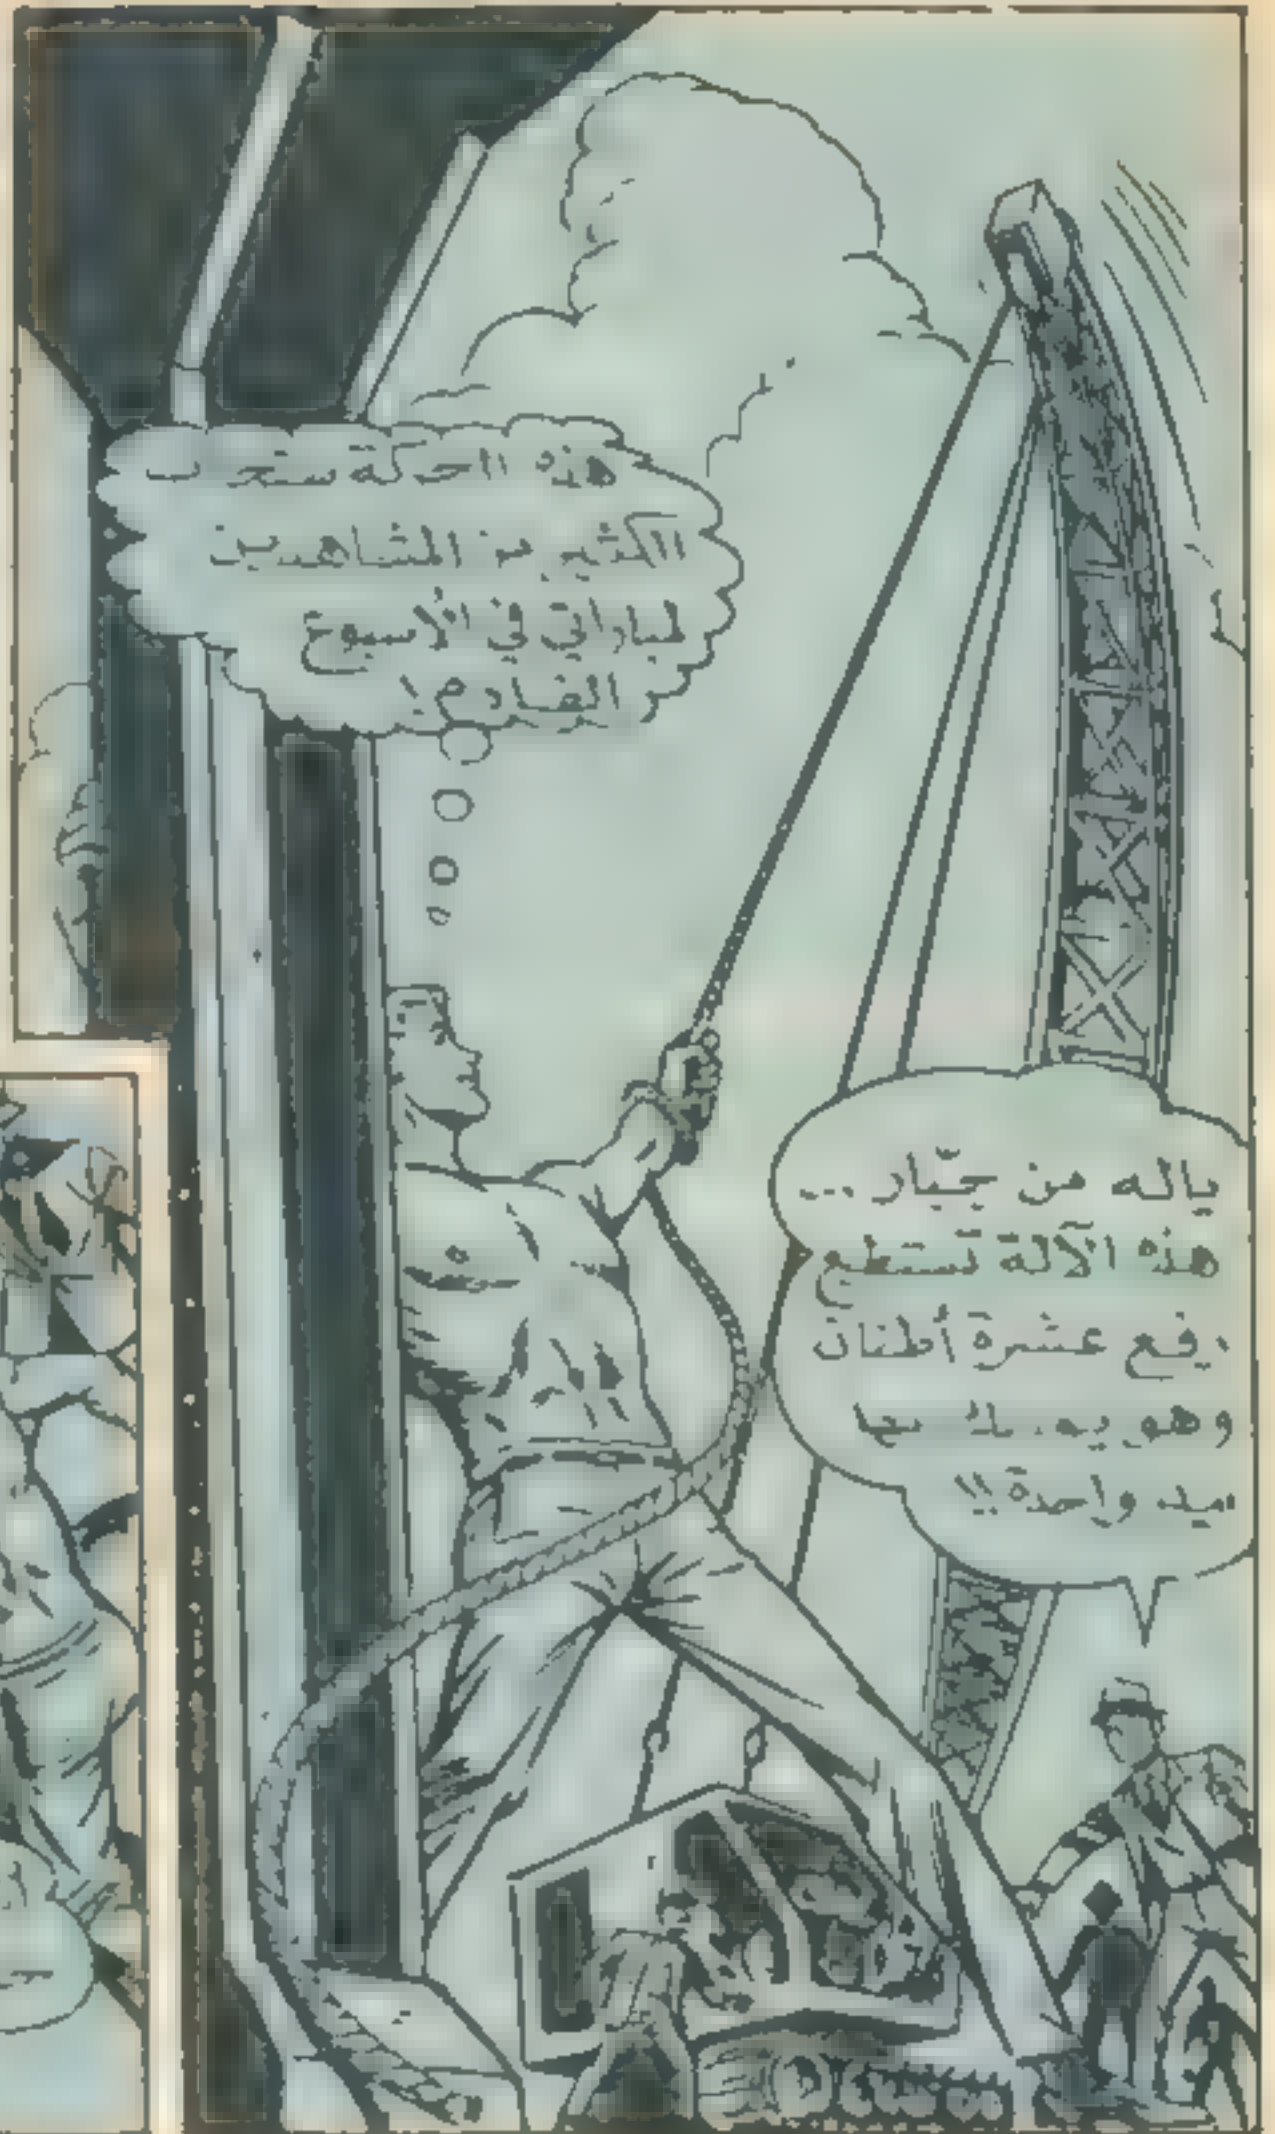 هذه الحركة ستجذب
الكثير من المشاهدين
لمباراتي في الأسبوع
القادم!
ياله من جبّار...
هذه الآلة تستطيع
رفع عشرة أطنان
وهو يمسك بها
بيد واحدة!!